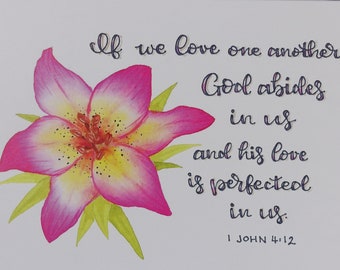 If we love one another
God abides
in us
and his love
is perfected
in us.
1 JOHN 4:12